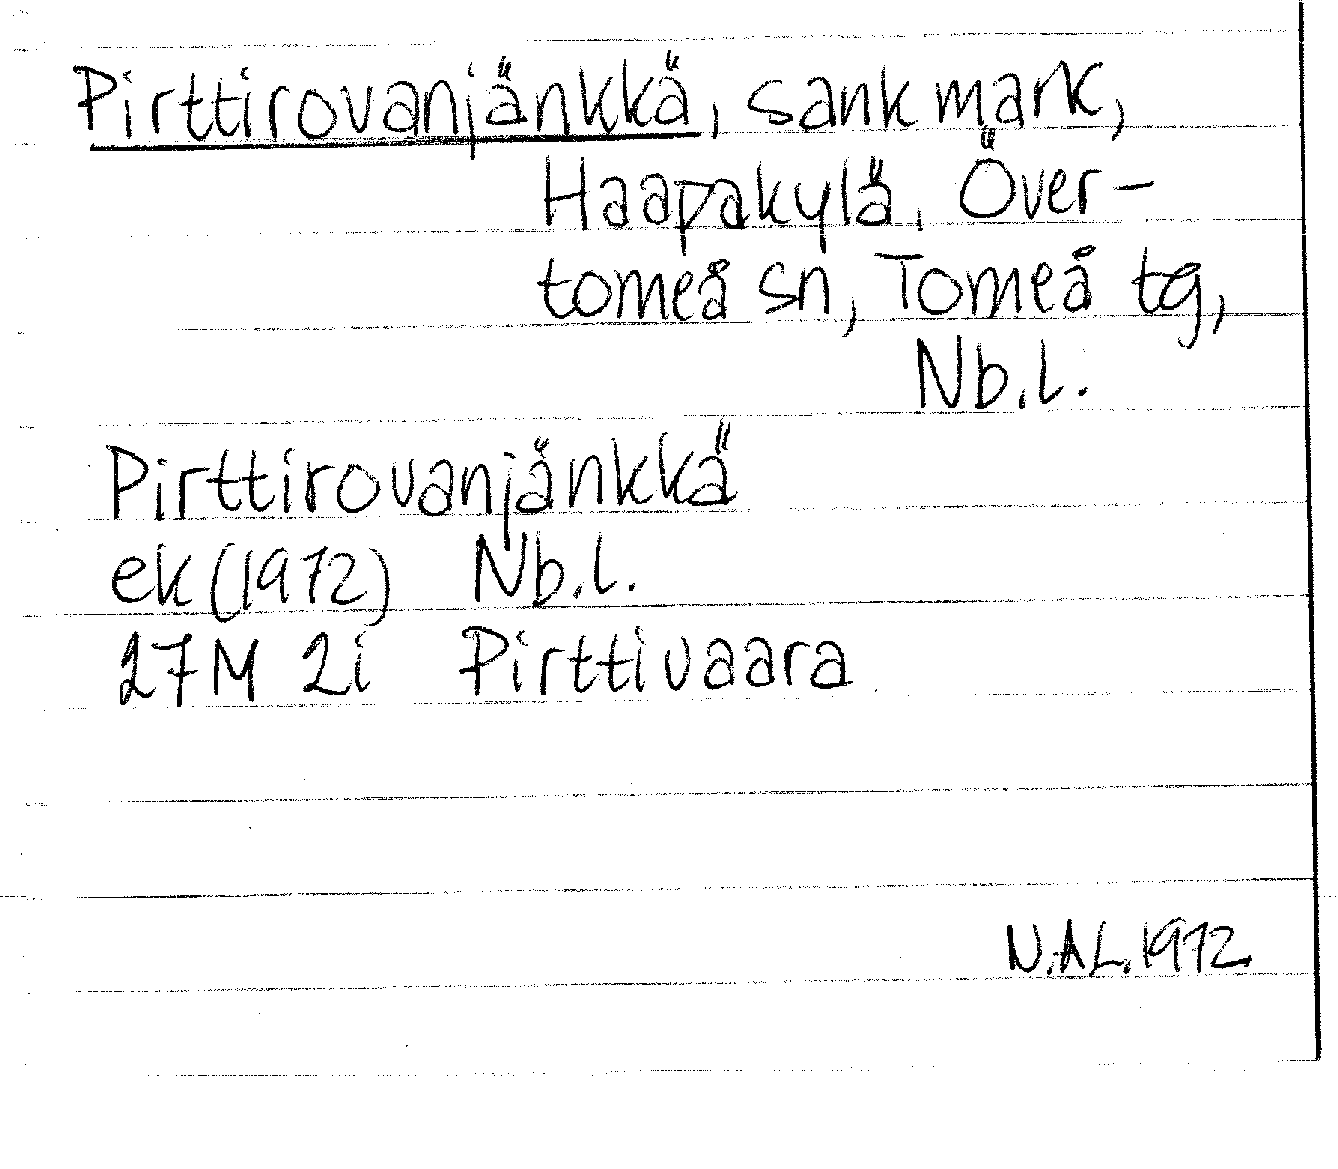 Pirttirovanjänkkä, sank mark,
Haapakylä, Över-
torneå sn, Torneå tg,
Nb.l.
Pirttirovanjänkkä
ek (1972) Nb.l.
27M 2i Pirttivaara
N.A.L. 1972